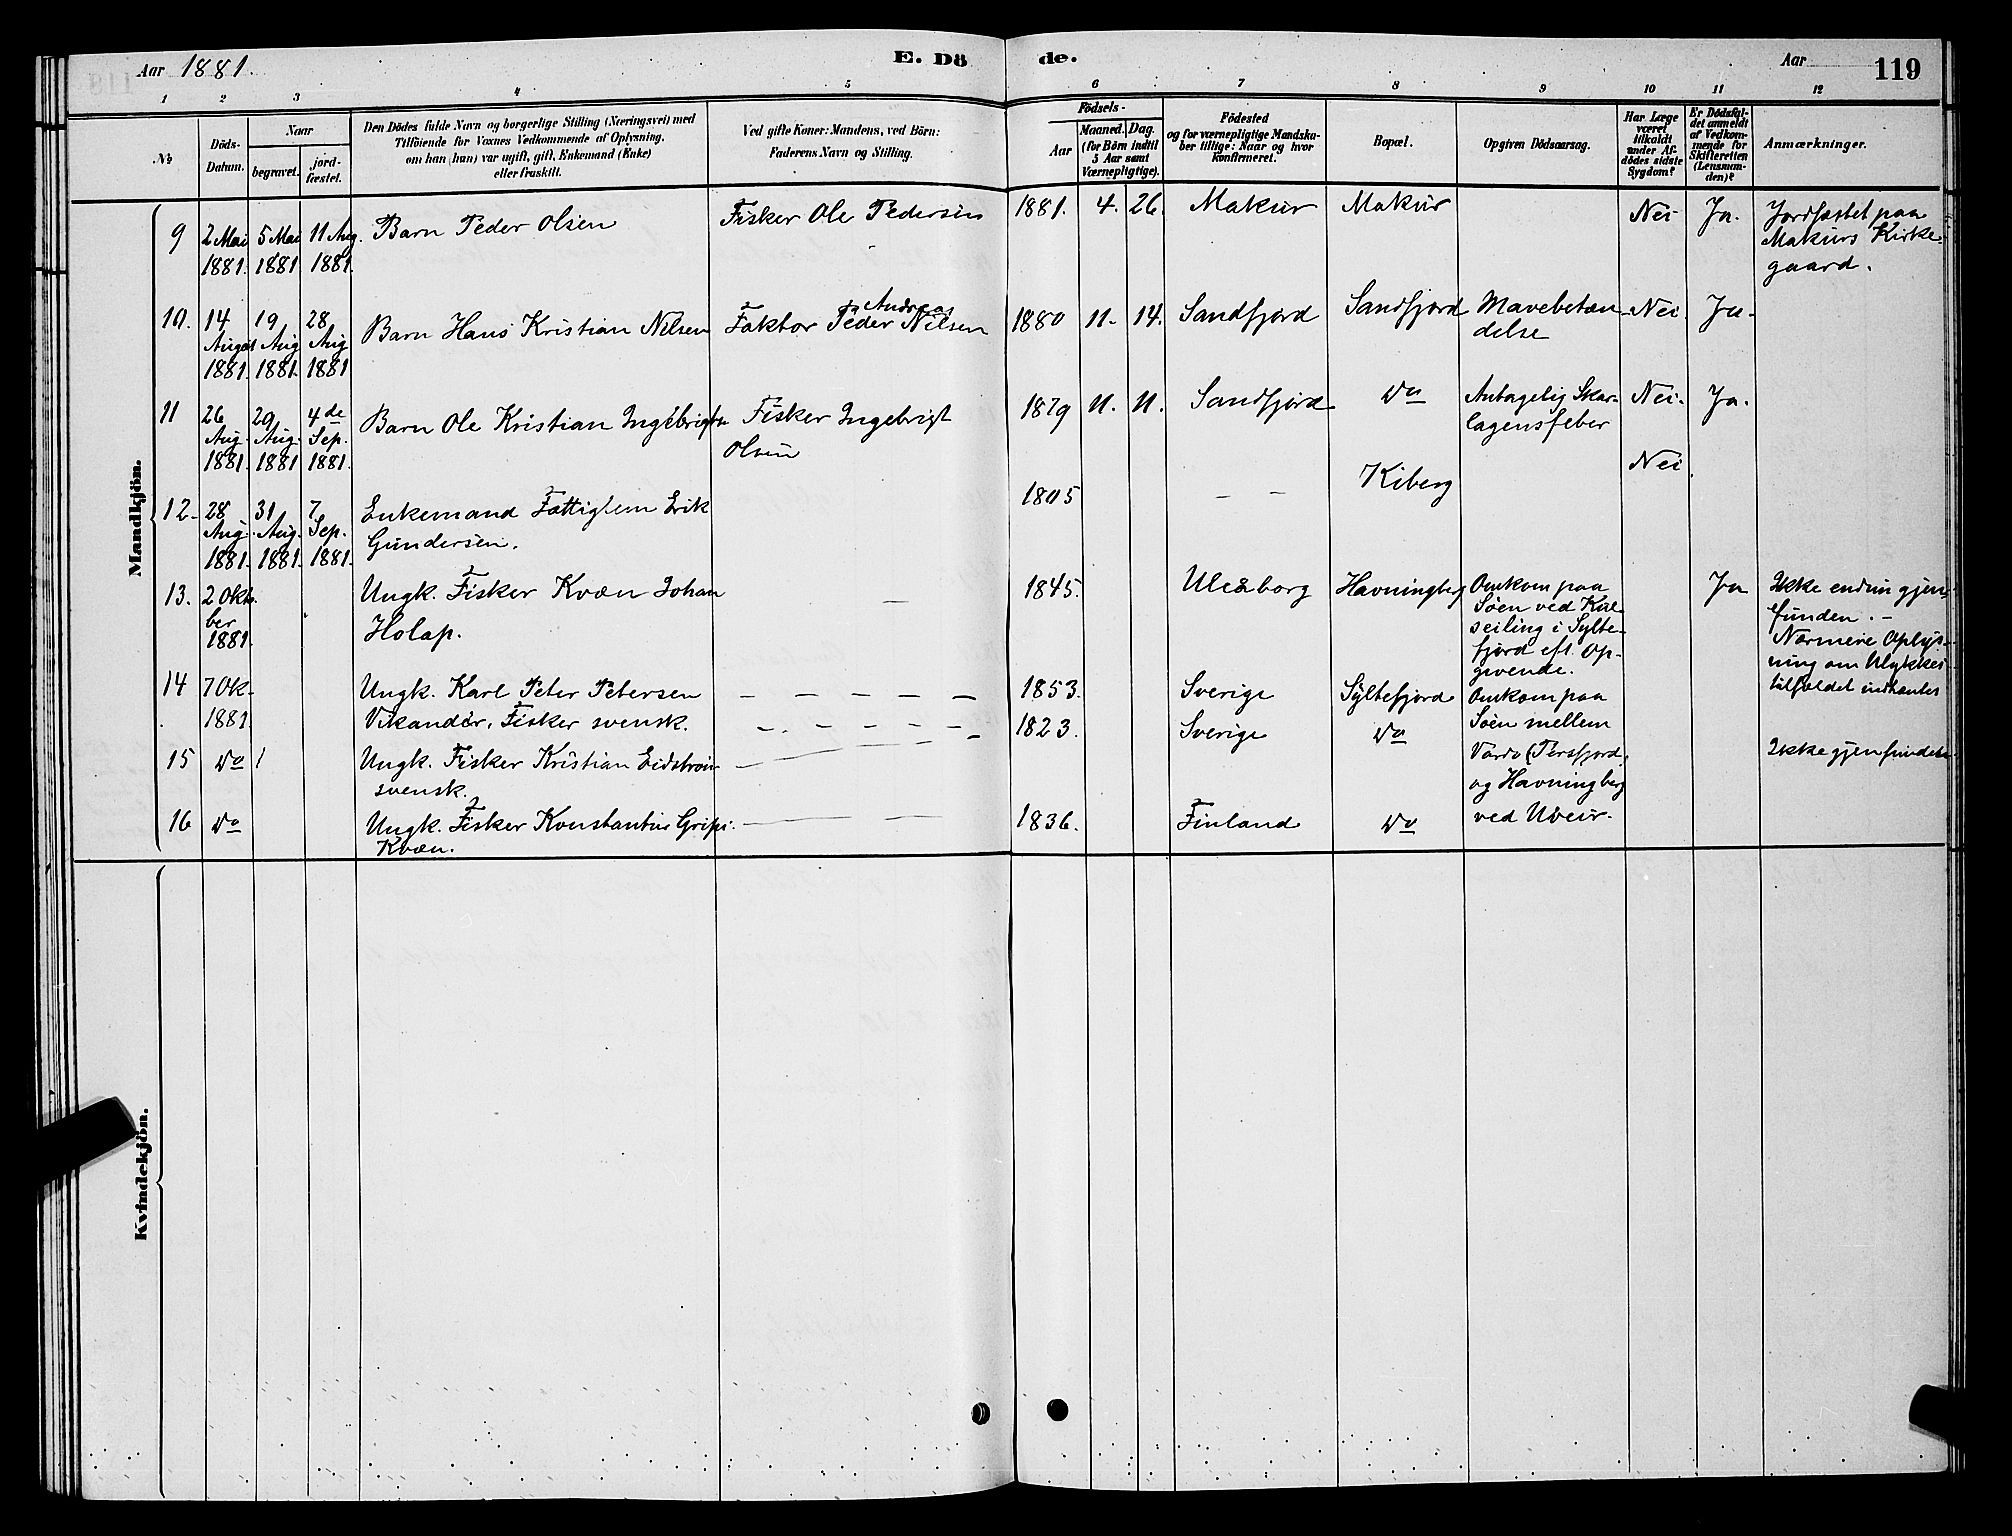 Aar 1881.
E. Dö
de.
Aar
119
1 2 3 4 5 6 7 8 9 10 11 12
№
Döds-
Datum.
Naar
begravet.
jord-
fæstet.
Den Dödes fulde Navn og borgerlige Stilling (Næringsvei) med
Tilföiende for Voxnes Vedkommende af Oplysning,
om han (hun) var ugift, gift, Enkemand (Enke)
eller fraskilt.
Ved gifte Koner: Mandens, ved Börn:
Faderens Navn og Stilling.
Födsels-
Aar
Maaned. Dag.
(for Börn indtil
5 Aar samt
Værnepligtige).
Födested
og for værnepligtige Mandska-
ber tillige: Naar og hvor
Konfirmeret.
Bopæl.
Opgiven Dödsaarsag.
Har Læge
været
tilkaldt
under Af-
dödes sidste
Sygdom?
Er Dödsfal-
det anmeldt
af Vedkom-
mende for
Skifteretten
(Lensman-
den)?
Anmærkninger.
Mandkjön.
9
2 Mai
1881.
5 Mai
1881
11 Aug.
1881.
Barn Peder Olsen
Fisker Ole Pedersen
1881. 4. 26.
Makur
Makur
Nei
Ja.
Jordfæstet paa
Makurs Kirke
gaard.
10.
14
August
1881.
19
Aug
1881.
28
Aug
1881
Barn Hans Kristian Nilsen
Andreas
Faktor Peder Nilsen
1880 11. 14.
Sandfjord
Sandfjord
Mavebetæn
delse
Nei
Ja.
11
26
Aug.
1881.
29
Aug.
1881
4de
Sep.
1881.
Barn Ole Kristian Ingebrigtsn
Fisker Ingebrigt
Olsen
1879 11. 11.
Sandfjord
do
Antagelig Skar-
lagensfeber
Nei.
Ja.
12.
28
Aug.
1881.
31
Aug.
1881.
7
Sep.
1881.
Enkemand Fattiglem Erik
Gundersen.
1805
— —
Kiberg
Nei
13.
2 Okto
ber
1881.
Ungk. Fisker Kvæn Johan
Holap.
—
1845.
Uleåborg
Havningberg
Omkom paa
Söen ved Kul
seiling i Sylte-
fjord eft. Op-
givende.
Ja
Ikke endnu gjen-
funden. —
Nærmere Oplys-
ning om Ulykkes-
tilfældet indhentes
14
7 Ok-
1881.
Ungk. Karl Peter Petersen
Vikander, Fisker svensk.
— — — — —
1853.
Sverige
Syltefjord
Omkom paa
Söen mellem
Vardö (Persfjord)
og Havningberg
ved Uveir.
15
do
Ungk. Fisker Kristian Eidström
svensk.
1823.
Sverige
do
Ikke gjenfundet
16
do
Ungk. Fisker Konstantin
Kvæn.
1836.
Finland
do
Kvindekjön.